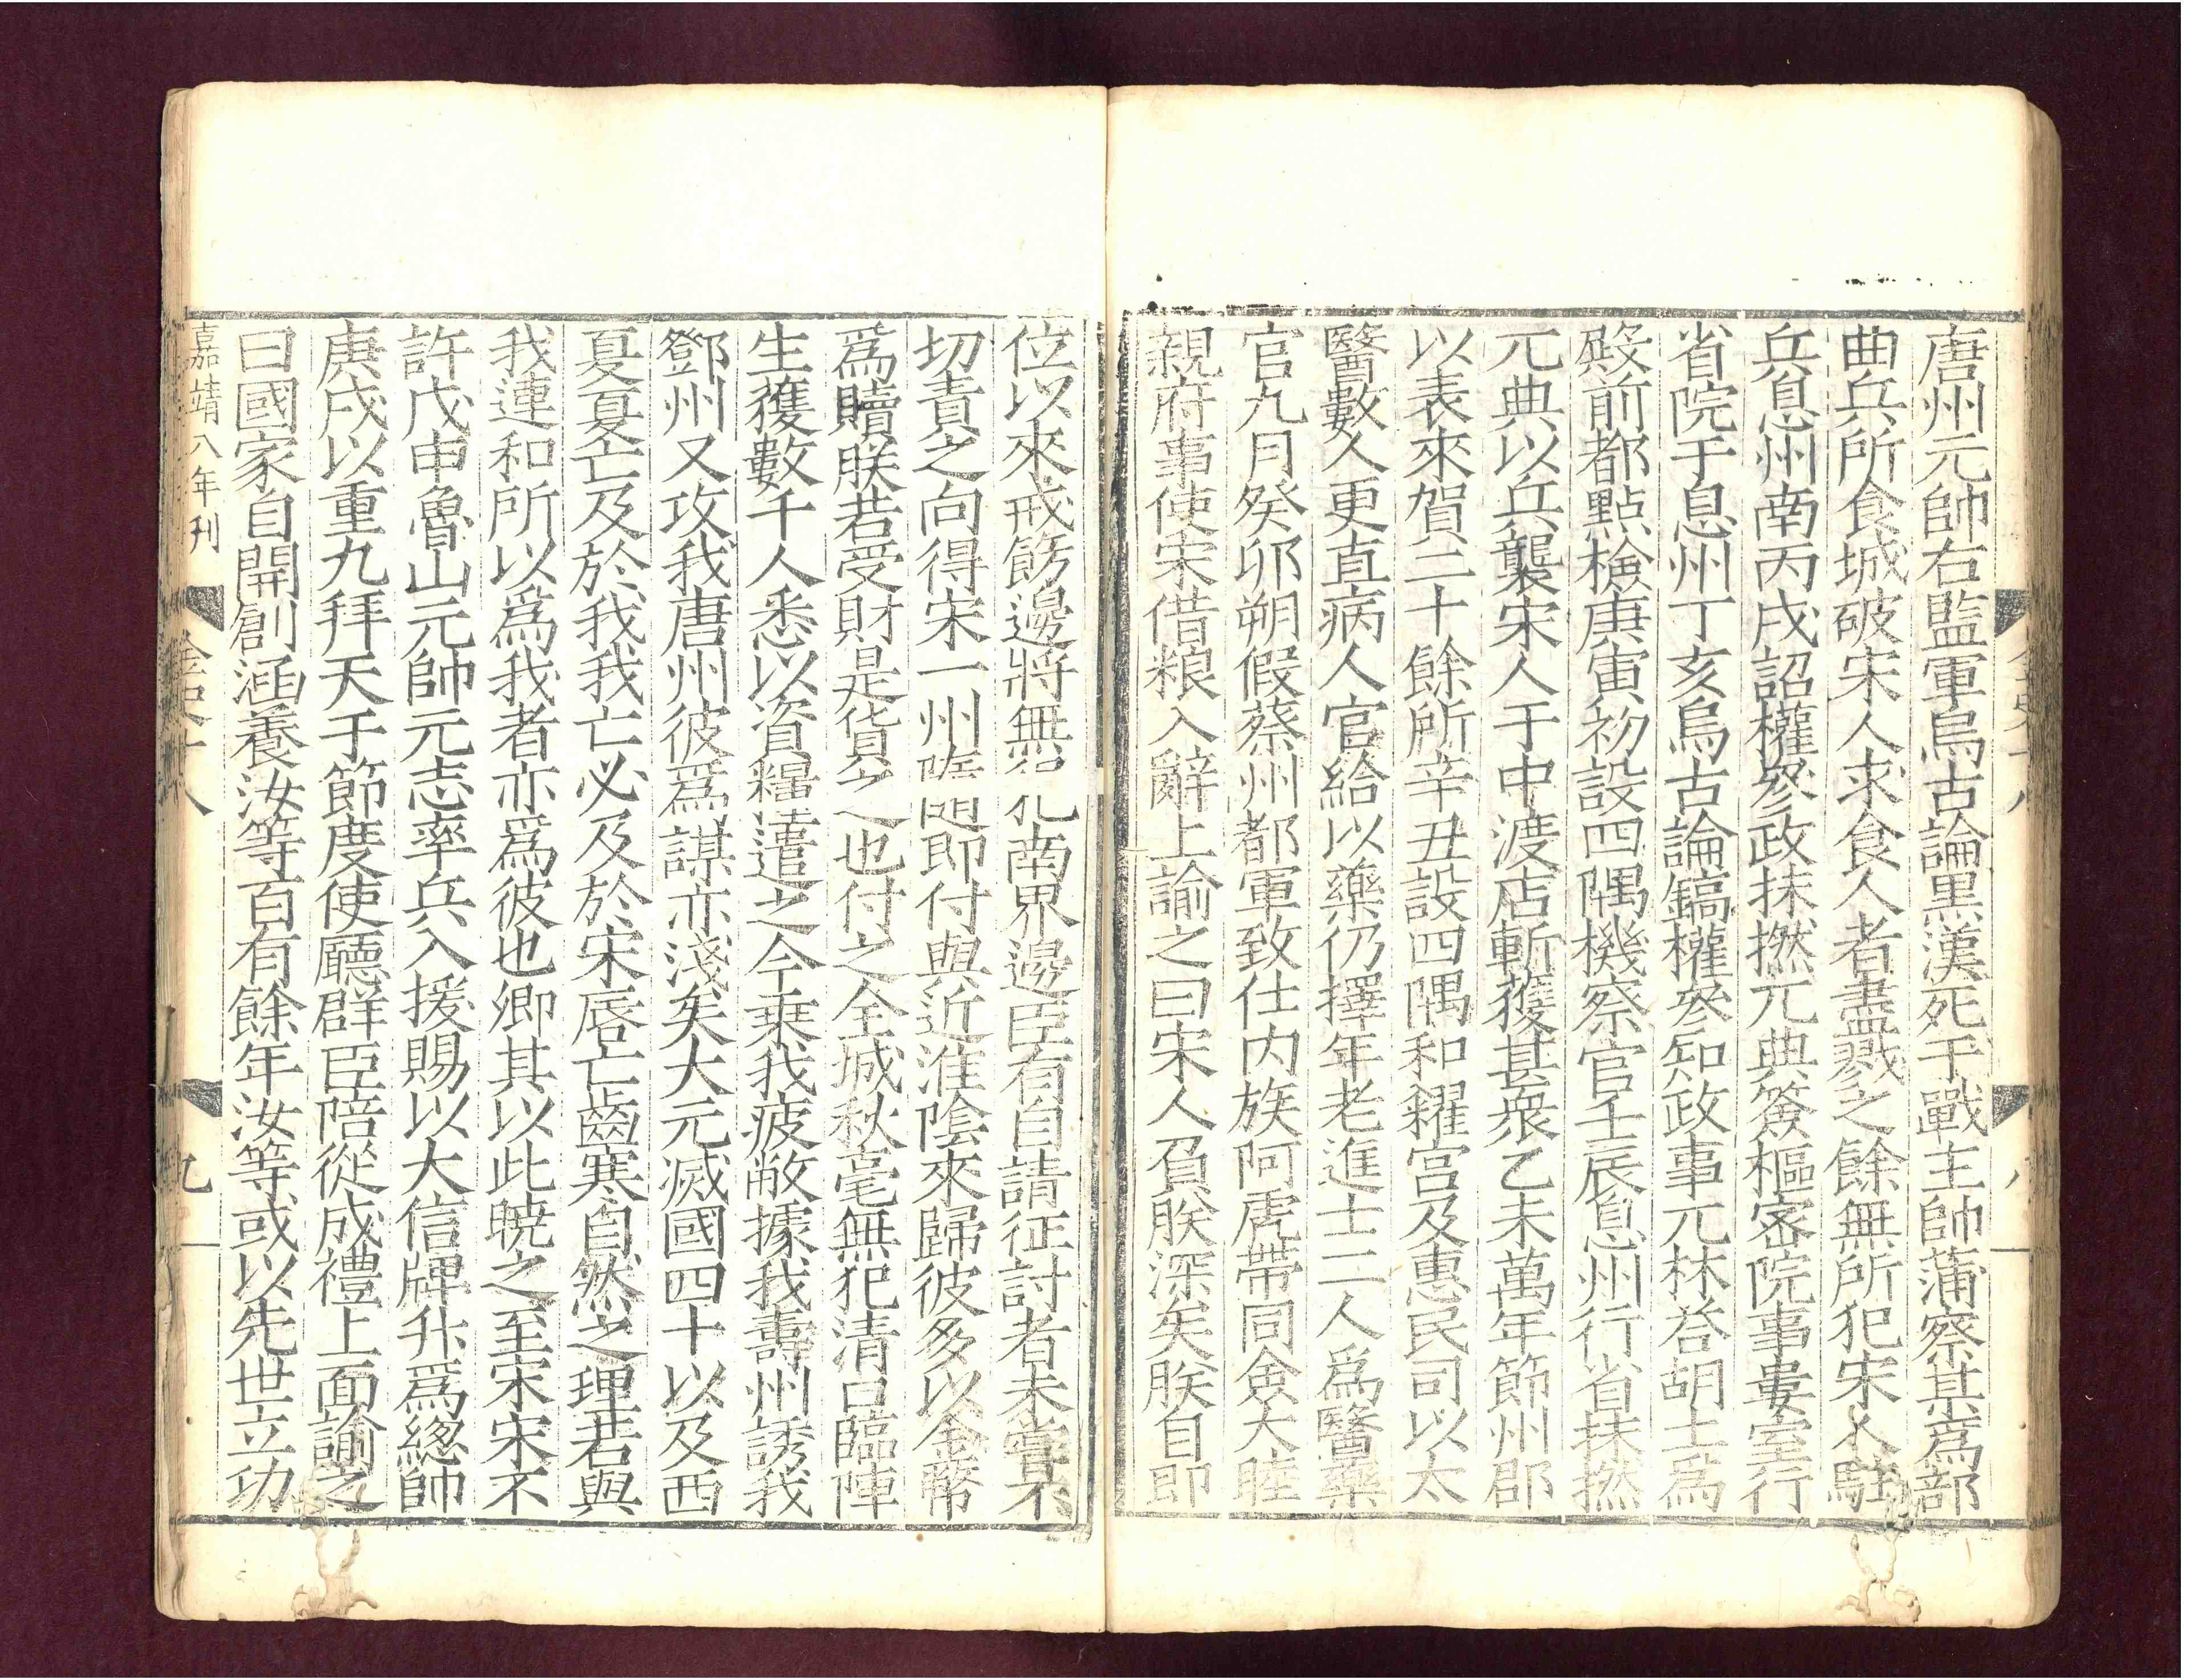 唐州元帥右監軍烏古論黑漢死于戰主帥蒲察某爲部
曲兵所食城破宋人求食人者盡戮之餘無所犯宋人駐
兵息州南丙戌詔權參政抹撚兀典簽樞密院事婁室行
省院于息州丁亥烏古論鎬權參知政事兀林荅胡土爲
殿前都點檢庚寅初設四隅機察官壬辰息州行省抹撚
兀典以兵襲宋人于中渡店斬獲甚衆乙未萬年節州郡
以表來賀二十餘所辛丑設四隅和糴官及惠民司以太
醫數人更直病人官給以藥仍擇年老進士二人爲醫藥
官九月癸卯朔假蔡州都軍致仕内族阿虎帶同僉大睦
親府事使宋借粮入辭上諭之曰宋人負朕深矣朕自即
位以來戒飭邊將無犯南界邊臣有自請征討者未嘗不
切責之向得宋一州隨即付與近淮陰來歸彼多以金幣
爲贖朕若受財是貨之也付之全城秋毫無犯清口臨陣
生獲數千人悉以資糧遣之今乗我疲敝據我壽州誘我
鄧州又攻我唐州彼爲謀亦淺矣大元滅國四十以及西
夏夏亡及於我我亡必及於宋唇亡齒寒自然之理若與
我連和所以爲我者亦爲彼也卿其以此曉之至宋宋不
許戊申魯山元帥元志率兵入援賜以大信牌升爲緫帥
庚戌以重九拜天于節度使廳群臣陪從成禮上面諭之
曰國家自開創涵養汝等百有餘年汝等或以先世立功
嘉靖八年刊
金史十八
九